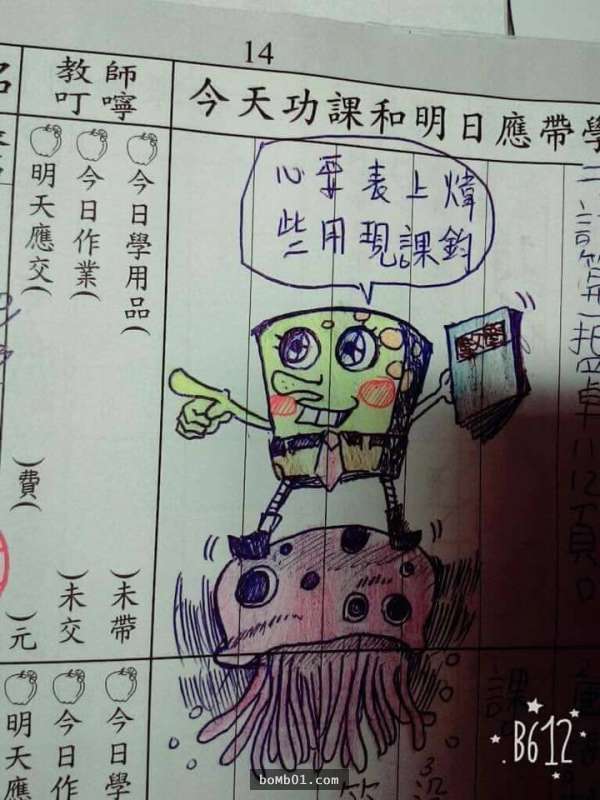 14
今天功課和明日應帶學
教師
叮嚀
煒鈞
上課
表現
要用
心些
今日學用品(
)未帶
今日作業(
)未交
明天應交(
)費(
)元
今日學
今日作
明天應
課
B612
bomb01.com